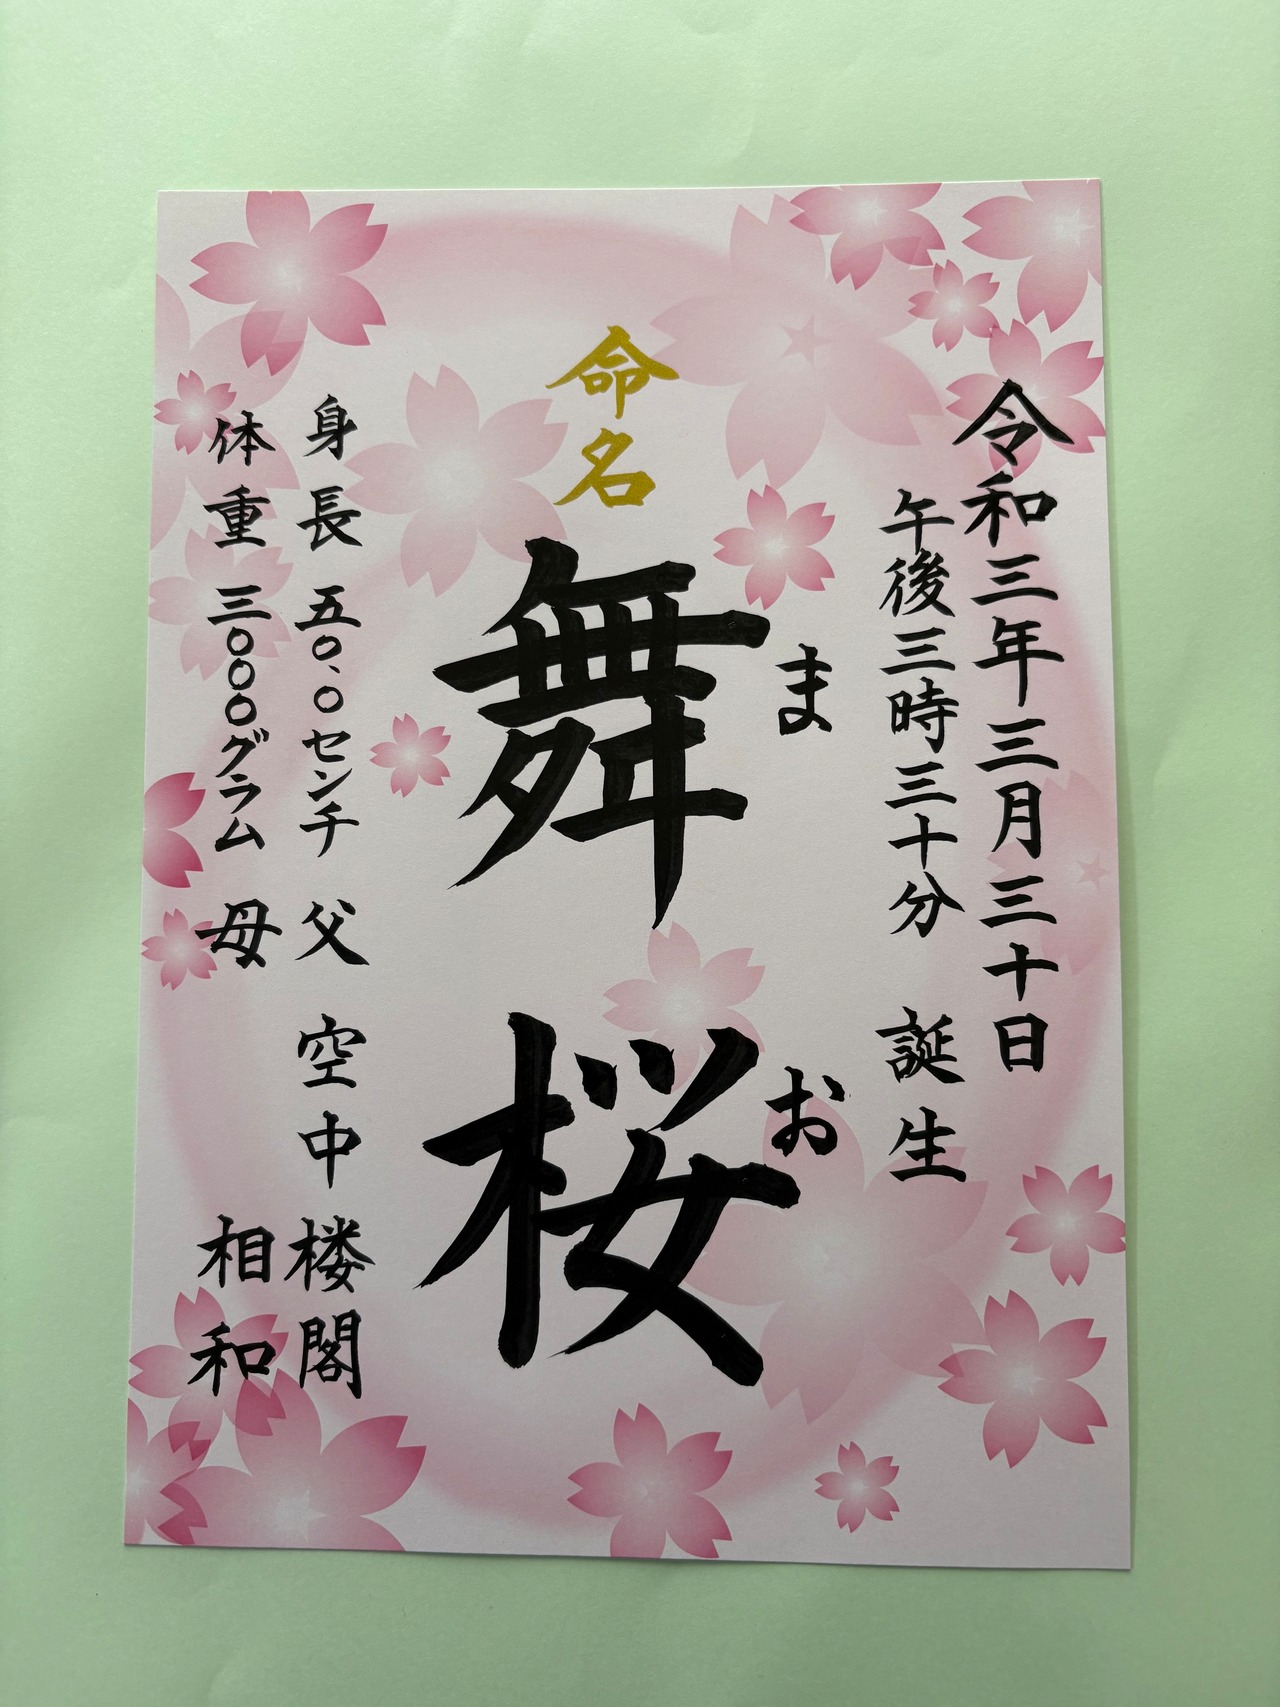 令和三年三月三十日
午後三時三十分 誕生
命名
舞桜
まお
身長 五〇、〇センチ 父 空中楼閣
体重 三〇〇〇グラム 母 相和